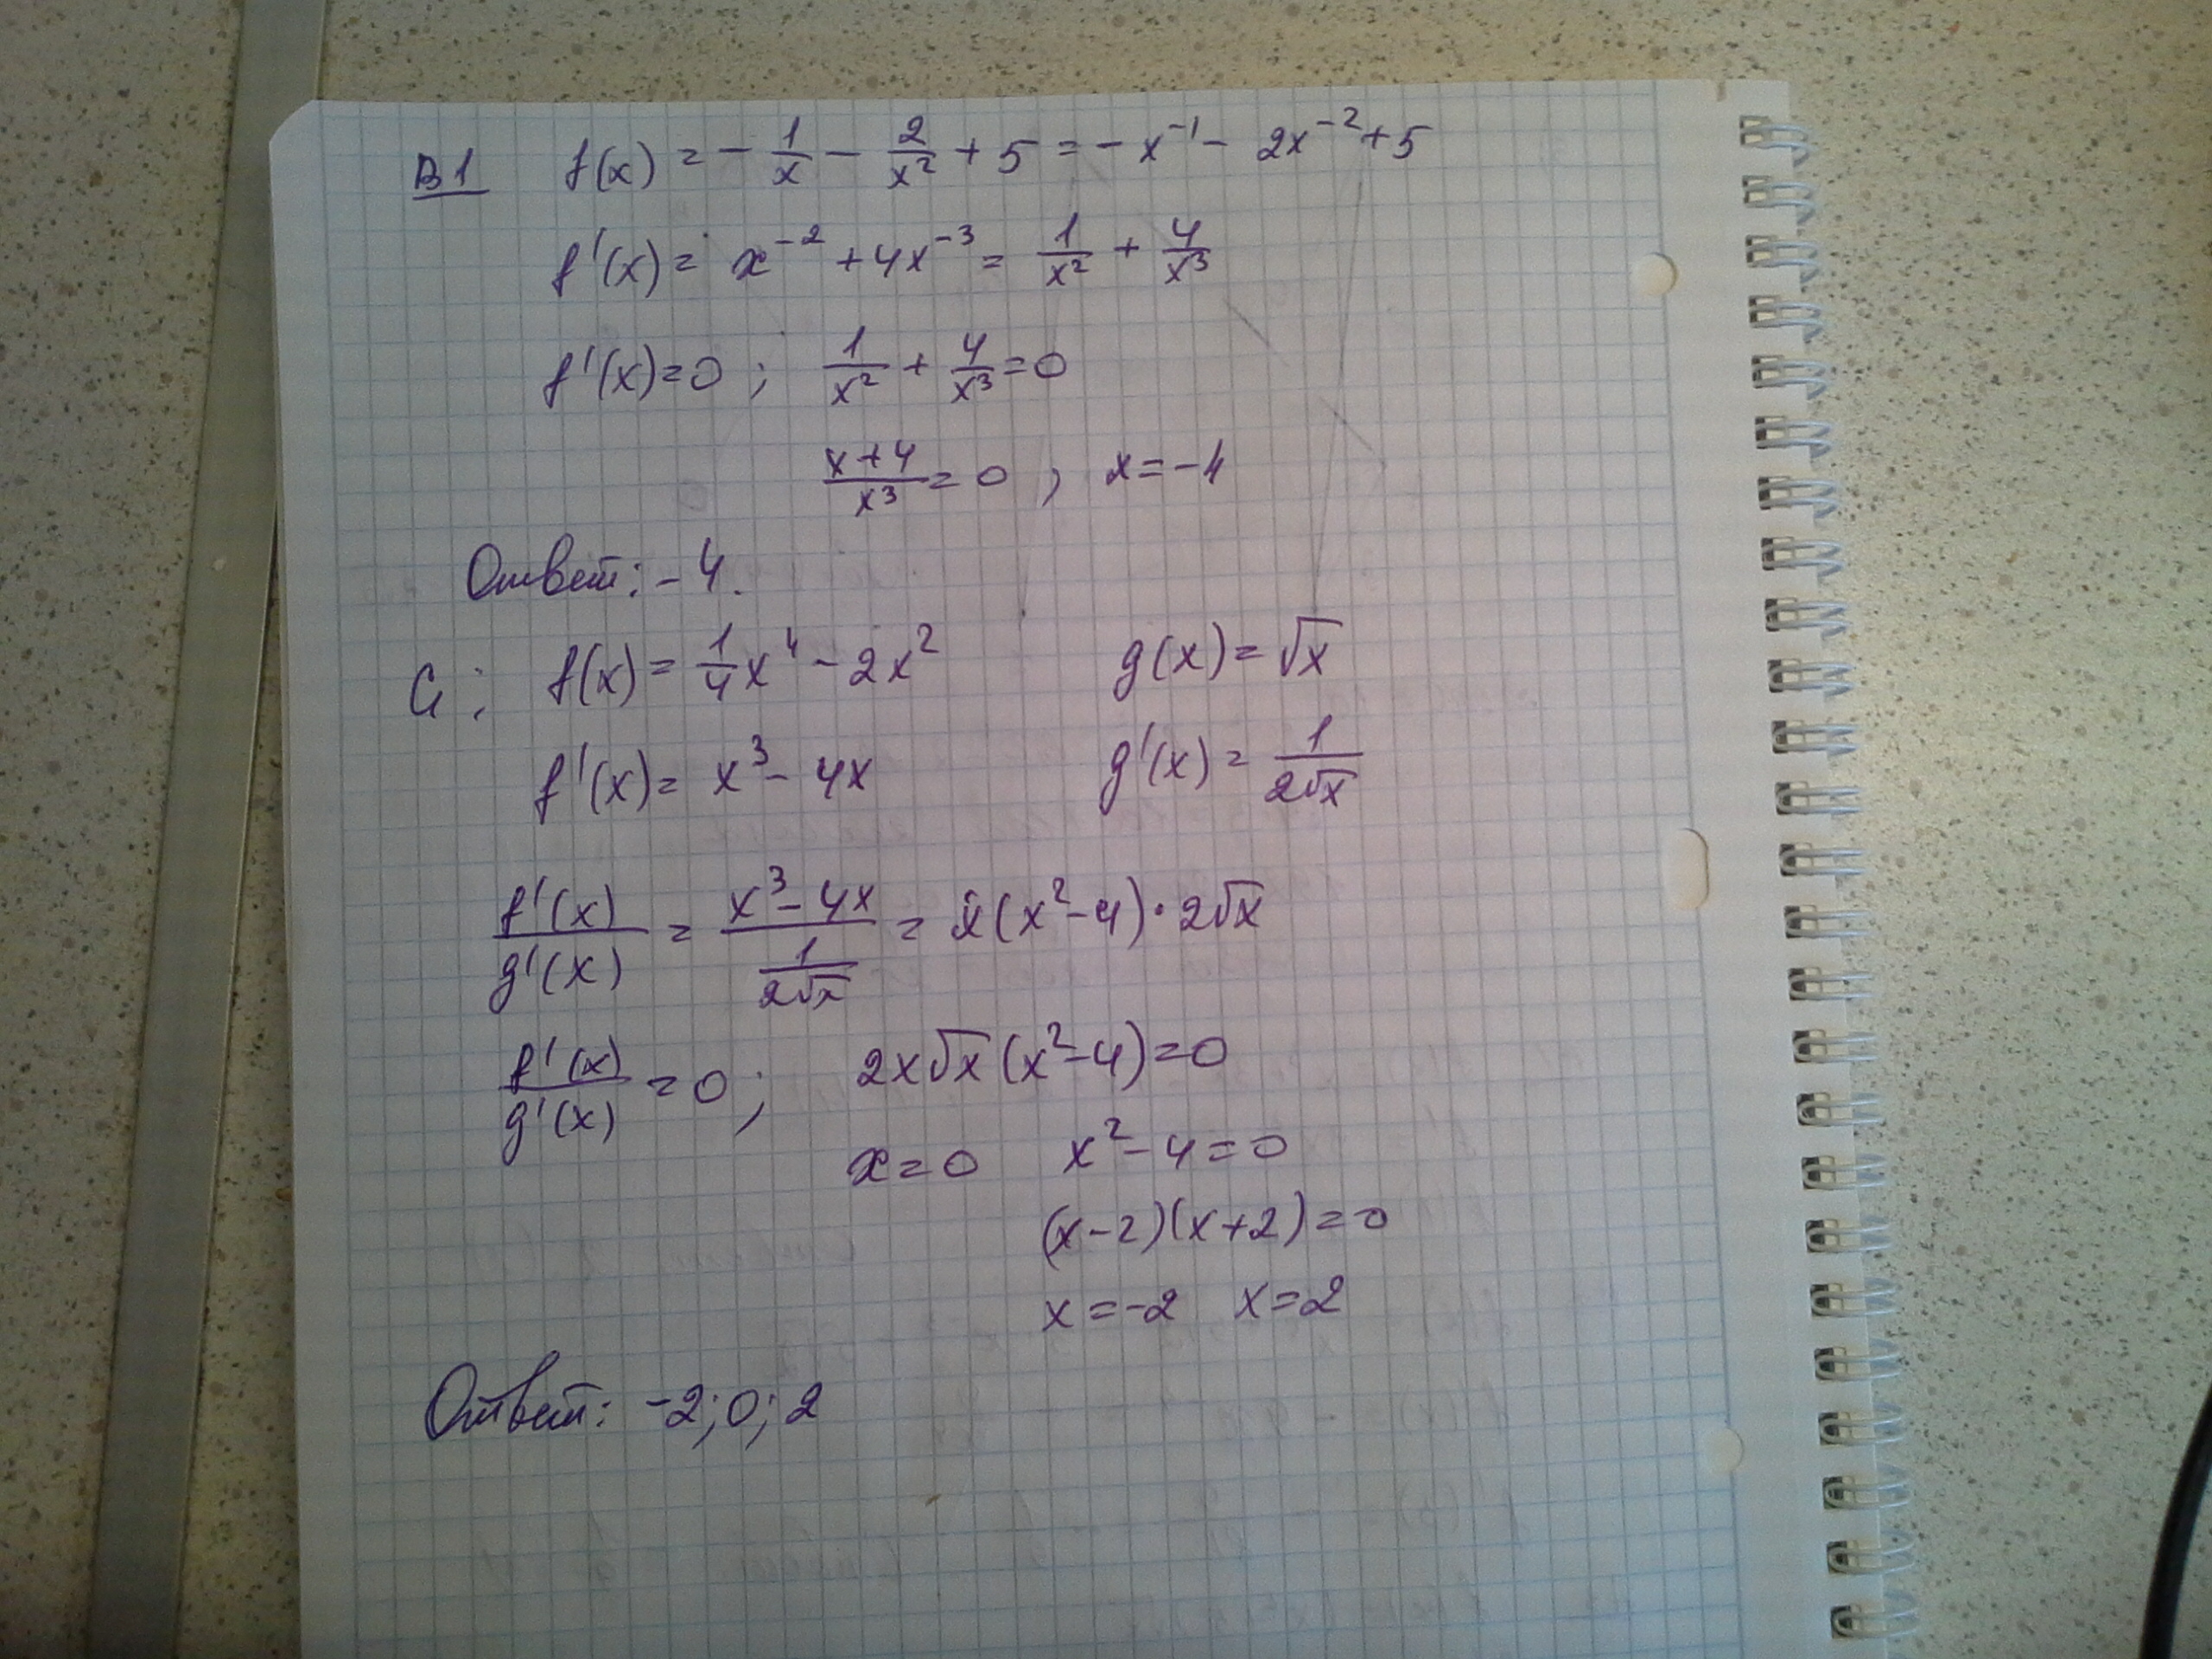 В1 f(x) = - 1/x - 2/x² + 5 = - x⁻¹ - 2x⁻² + 5
f'(x) = x⁻² + 4x⁻³ = 1/x² + 4/x³
f'(x)=0 ; 1/x² + 4/x³ = 0
(x+4)/x³ = 0 , x = -4
Ответ: -4.
С1 ; f(x) = 1/4 x⁴ - 2x² g(x) = √x
f'(x) = x³ - 4x g'(x) = 1/(2√x)
f'(x)/g'(x) = (x³ - 4x)/(1/(2√x)) = x(x² - 4) · 2√x
f'(x)/g'(x) = 0 ; 2x√x (x² - 4) = 0
x = 0 x² - 4 = 0
(x-2)(x+2) = 0
x = -2 x = 2
Ответ: -2; 0; 2